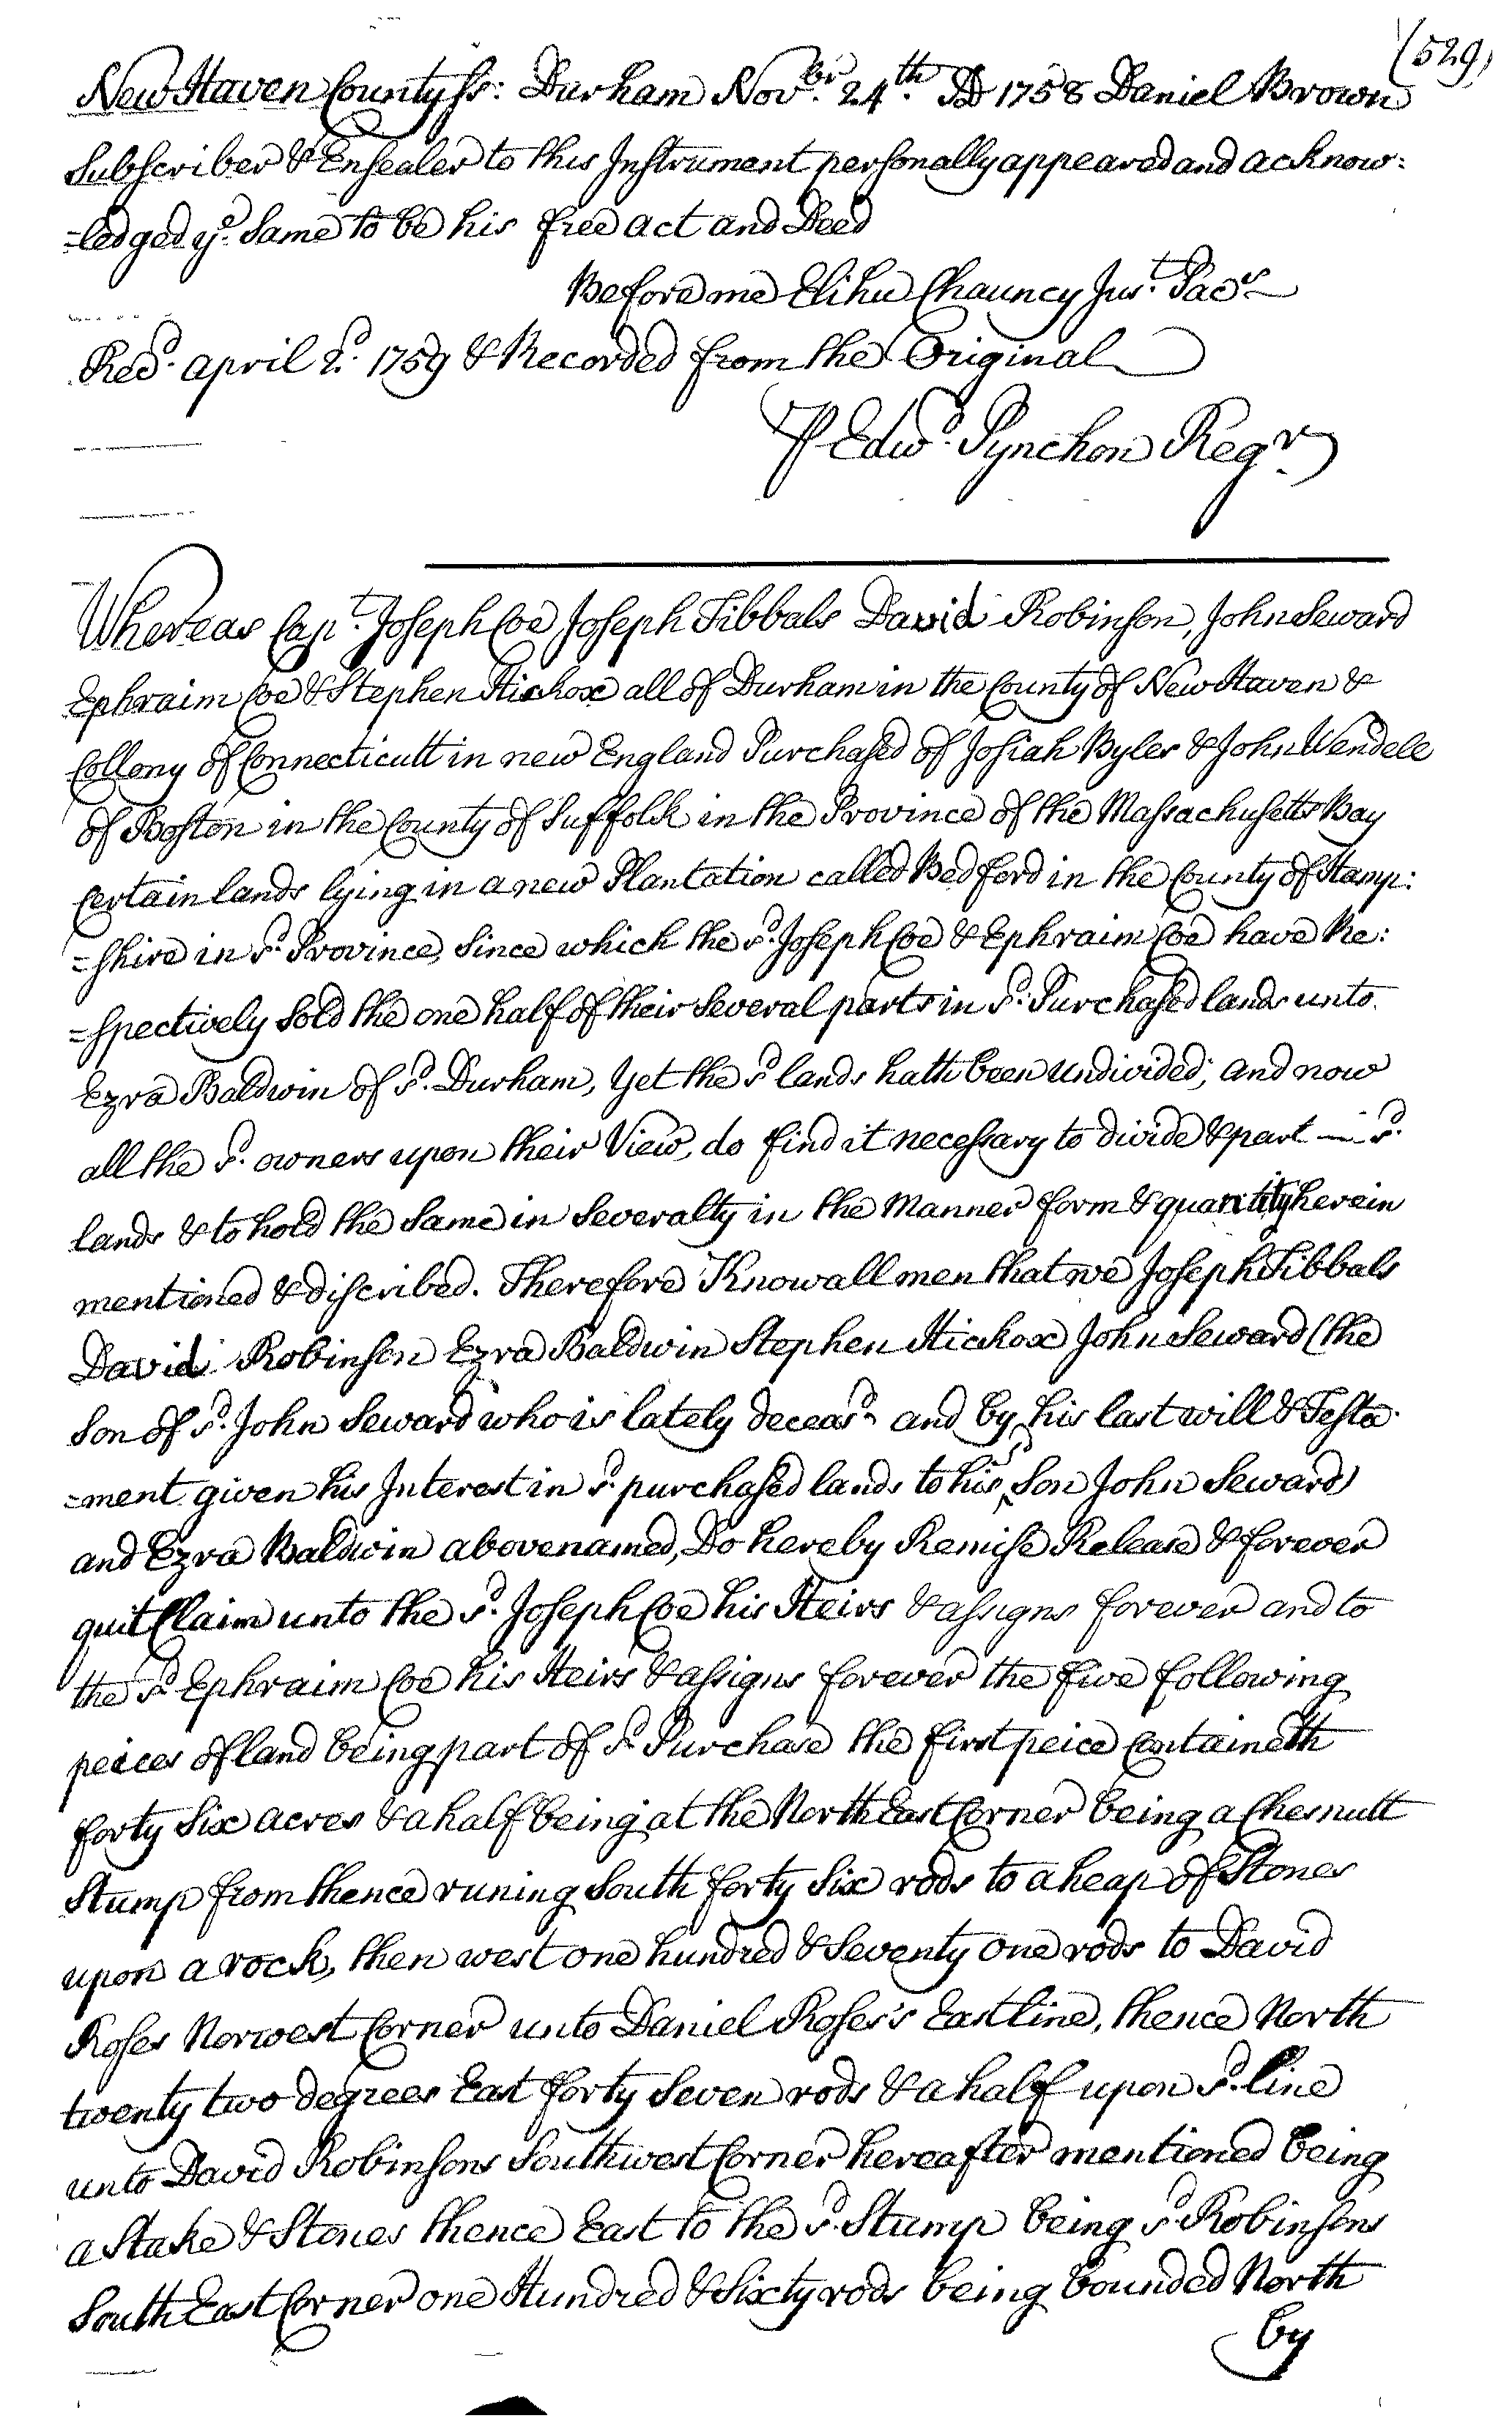 (529)
New Haven County ss: Durham Nov.br 24.th AD 1758 Daniel Brown
Subscriber & Ensealer to this Instrument personally appeared and acknow:
=ledged ye. Same to be his free act and Deed
Before me Elihu Chauncy Jus.t Pacs
Recd. april 2d. 1759 & Recorded from the Original
P Edwd. Pynchon Regr
Whereas Cap.t Joseph Coe, Joseph Tibbals David Robinson, John Seward
Ephraim Coe & Stephen Hickox all of Durham in the County of New Haven &
Collony of Connecticutt in new England Purchased of Josiah Byles & John Wendele
of Boston in the County of Suffolk in the Province of the Massachusetts Bay
Certain lands lying in a new Plantation called Bedford in the County of Hamp:
=shire in sd. Province, Since which the sd. Joseph Coe & Ephraim Coe have Re:
=spectively Sold the one half of their Several parts in sd. Purchased lands unto
Ezra Baldwin of sd. Durham, Yet the sd lands hath been undivided; and now
all the sd. owners upon their View, do find it necessary to divide & part — sd.
lands & to hold the Same in Severalty in the Manner form & quantity herein
mentioned & discribed. Therefore Know all men that we Joseph Tibbals
David Robinson Ezra Baldwin Stephen Hickox John Seward (the
Son of sd. John Seward who is lately deceasd. and by his last will & Testa
=ment given his Interest in sd. purchased lands to his sd Son John Seward)
and Ezra Baldwin abovenamed, Do hereby Remise Release & forever
quit Claim unto the sd. Joseph Coe his Heirs & assigns forever and to
the sd Ephraim Coe his Heirs & assigns forever the five following
peices of land being part of sd. Purchase the first peice Containeth
forty Six acres & a half being at the North East Corner being a Chesnutt
Stump from thence runing South forty Six rods to a heap of Stones
upon a rock, then west one hundred & Seventy one rods to David
Roses Norwest Corner unto Daniel Roses's East line, thence North
twenty two degrees East forty Seven rods & a half upon sd. line
unto David Robinsons Southwest Corner hereafter mentioned being
a Stake & Stones thence East to the sd. Stump being sd. Robinsons
South East Corner one Hundred & Sixty rods being bounded North
by